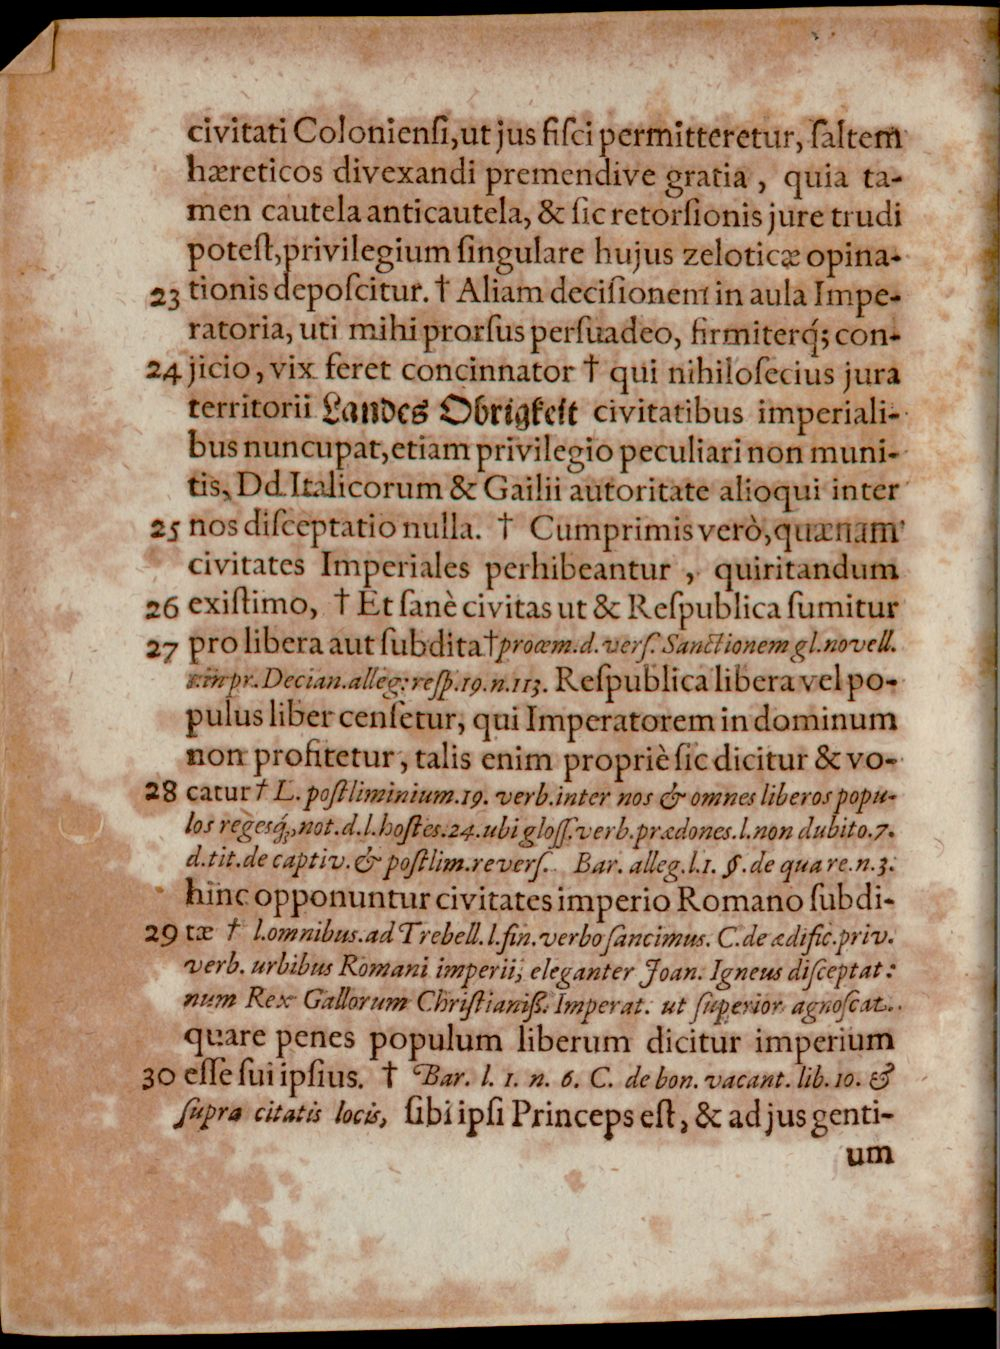 civitati Colonienſi,ut jus fiſci permitteretur, ſaltem
hæreticos divexandi premendive gratia , quia ta-
men cautela anticautela, & ſic retorſionis jure trudi
poteſt,privilegium ſingulare hujus zeloticæ opina-
23 tionis depoſcitur. † Aliam deciſionem in aula Impe-
ratoria, uti mihi prorſus perſuadeo, firmiterq́; con-
24 jicio , vix feret concinnator † qui nihiloſecius jura
territorii Landes Obrigkeit civitatibus imperiali-
bus nuncupat,etiam privilegio peculiari non muni-
tis, Dd. Italicorum & Gailii autoritate alioqui inter
25 nos diſceptatio nulla. † Cumprimis verò,quænam
civitates Imperiales perhibeantur , quiritandum
26 exiſtimo, † Et ſanè civitas ut & Reſpublica ſumitur
27 pro libera aut ſubdita†proœm.d.verſ. Sanctionem gl.novell.
in pr. Decian.alleg: reſp.19.n.113. Reſpublica libera vel po-
pulus liber cenſetur, qui Imperatorem in dominum
non profitetur, talis enim propriè ſic dicitur & vo-
28 catur † L. poſtliminium.19. verb.inter nos & omnes liberos popu-
los regesq́;,not.d.l.hoſtes.24.ubi gloſſ.verb.prædones.l.non dubito.7.
d.tit.de captiv.& poſtlim.reverſ. Bar. alleg.l.1. §.de qua re.n.3.
hinc opponuntur civitates imperio Romano ſubdi-
29 tæ † l.omnibus.ad Trebell.l.fin.verbo ſancimus. C.de ædific.priv.
verb. urbibus Romani imperii, eleganter Joan. Igneus diſceptat:
num Rex Gallorum Chriſtianiß. Imperat. ut ſuperior agnoſcat.
quare penes populum liberum dicitur imperium
30 eſſe ſui ipſius. † Bar. l. 1. n. 6. C. de bon. vacant. lib. 10. &
ſupra citatis locis, ſibi ipſi Princeps eſt, & ad jus genti-
um